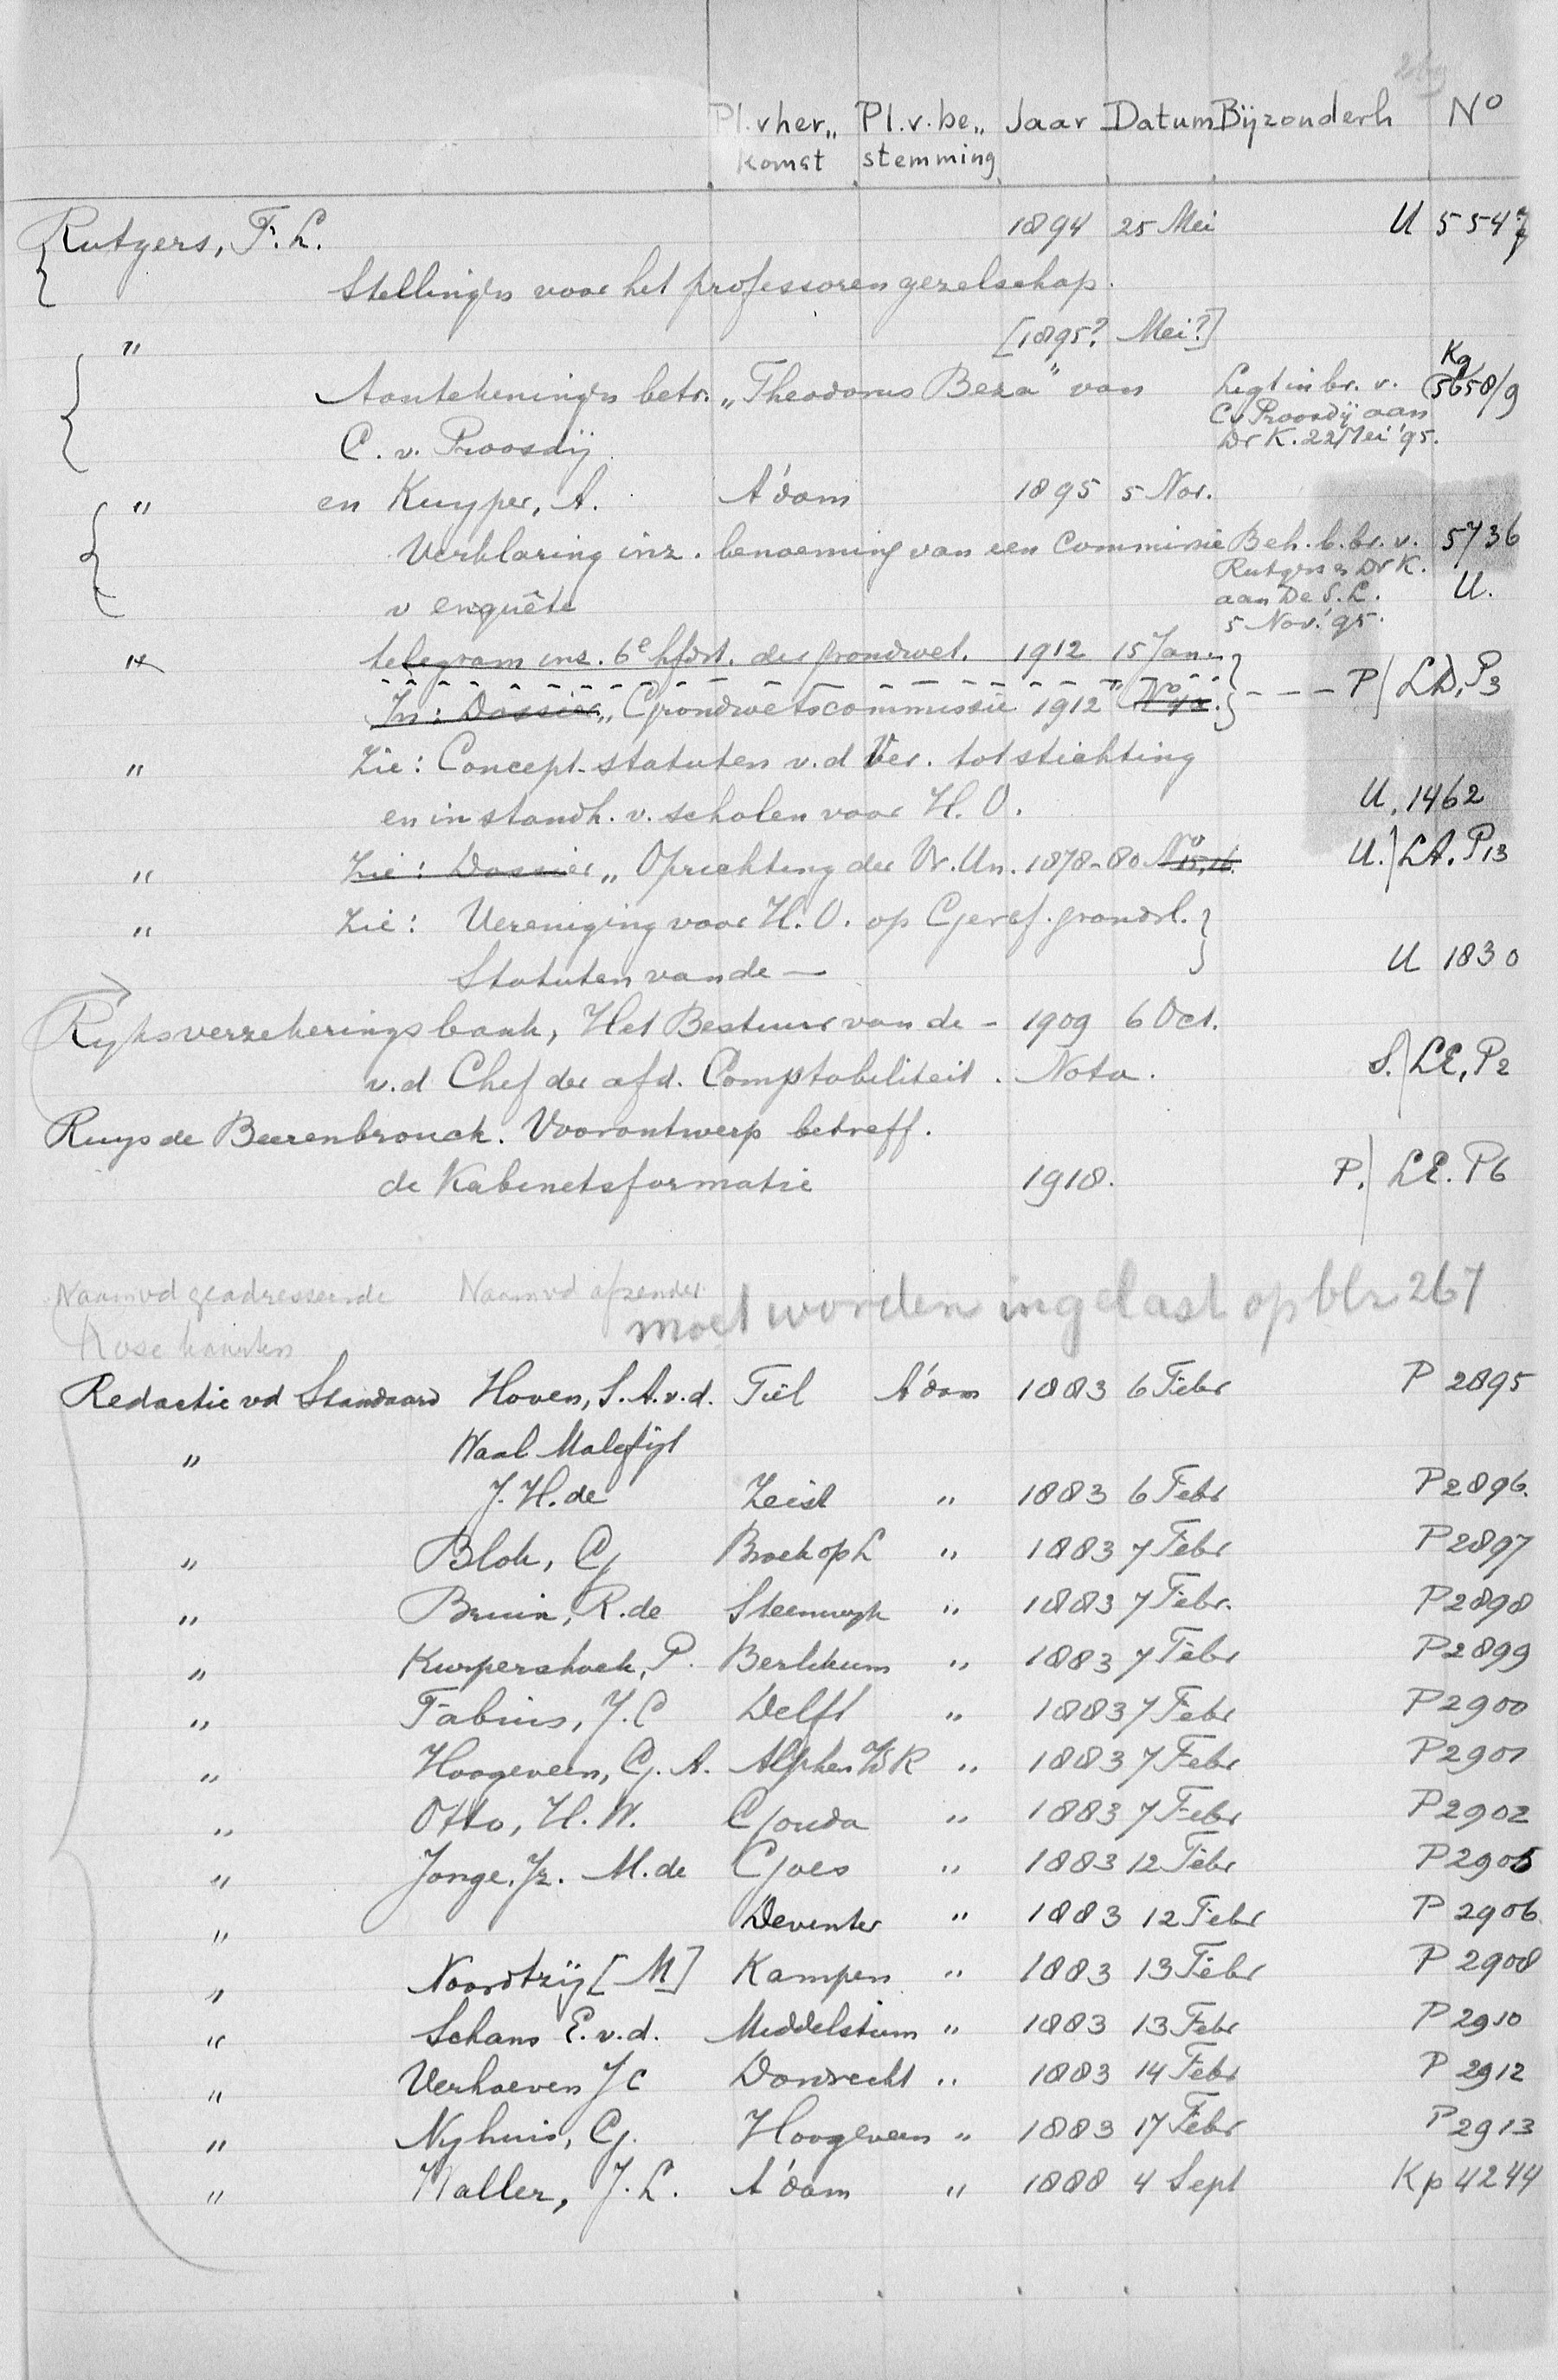 Pl.vher„ Pl.v.be„ Jaar Datum Bijzonderh No
komst stemming
Rutgers, F. L. 1894 25 Mei U 5547
Stellingen voor het professoren gezelschap.
" [1895? Mei?]
Aantekeningen betr. „Theodorus Beza" van Legt in br. v. Kg 5658/9
C. v. Proosdij Cv Proosdij aan
Dr K. 22 Mei '95.
" en Kuyper, A. A'dam 1895 5 Nov.
Verklaring inz. benoeming van een Commissie Beh. b. br. v. 5736
Rutgers en Dr K.
v enquête aan De S. L. U.
5 Nov. '95.
" telegram inz. 6e hfdst. der grondwet. 1912 15 Jan.
In: Dossier „Grondwetscommissie 1912" No 4a. P/ LD, P3
" Zie: Concept-statuten v.d Ver. tot stichting
en in standh. v. scholen voor H. O. U. 1462
" Zie: Dossier „Oprichting der Vr. Un. 1878-80 No 15,16. U./ LA. P13
" Zie: Vereniging voor H. O. op Geref. grondsl.
Statuten van de — U 1830
Rijksverzekeringsbank, Het Bestuur van de - 1909 6 Oct.
v.d Chef der afd. Comptabiliteit. Nota. S./ LE, P2
Ruys de Beerenbrouck. Voorontwerp betreff.
de Kabinetsformatie 1918. P./ LE. P6
Naam vd geadresseerde Naam vd afzender
moet worden ingelast op blz 267
Rose kaarten
Redactie vd Standaard Hoven, S. A. v. d. Tiel A'dam 1883 6 Febr P 2895
" Waal Malefijt
J. H. de Zeist " 1883 6 Febr P 2896.
" Blok, G Broek op L " 1883 7 Febr P 2897
" Bruin, R. de Steenwyk " 1883 7 Febr. P 2898
" Kurpershoek, P. Berlikum " 1883 7 Febr P 2899
" Fabius, J. C Delft " 1883 7 Febr P 2900
" Hoogeveen, G. A. Alphen a/d R " 1883 7 Febr P 2901
" Otto, H. W. Gouda " 1883 7 Febr P 2902
" Jonge. Jz. M. de Goes " 1883 12 Febr P 2905
" Deventer " 1883 12 Febr P 2906
" Noordtzij [M] Kampen " 1883 13 Febr P 2908
" Schans E. v. d. Middelstum " 1883 13 Febr P 2910
" Verhoeven J C Dordrecht " 1883 14 Febr P 2912
" Nyhuis, G. Hoogeveen " 1883 17 Febr P 2913
" Waller, J. L. A'dam " 1888 4 Sept Kp 4244